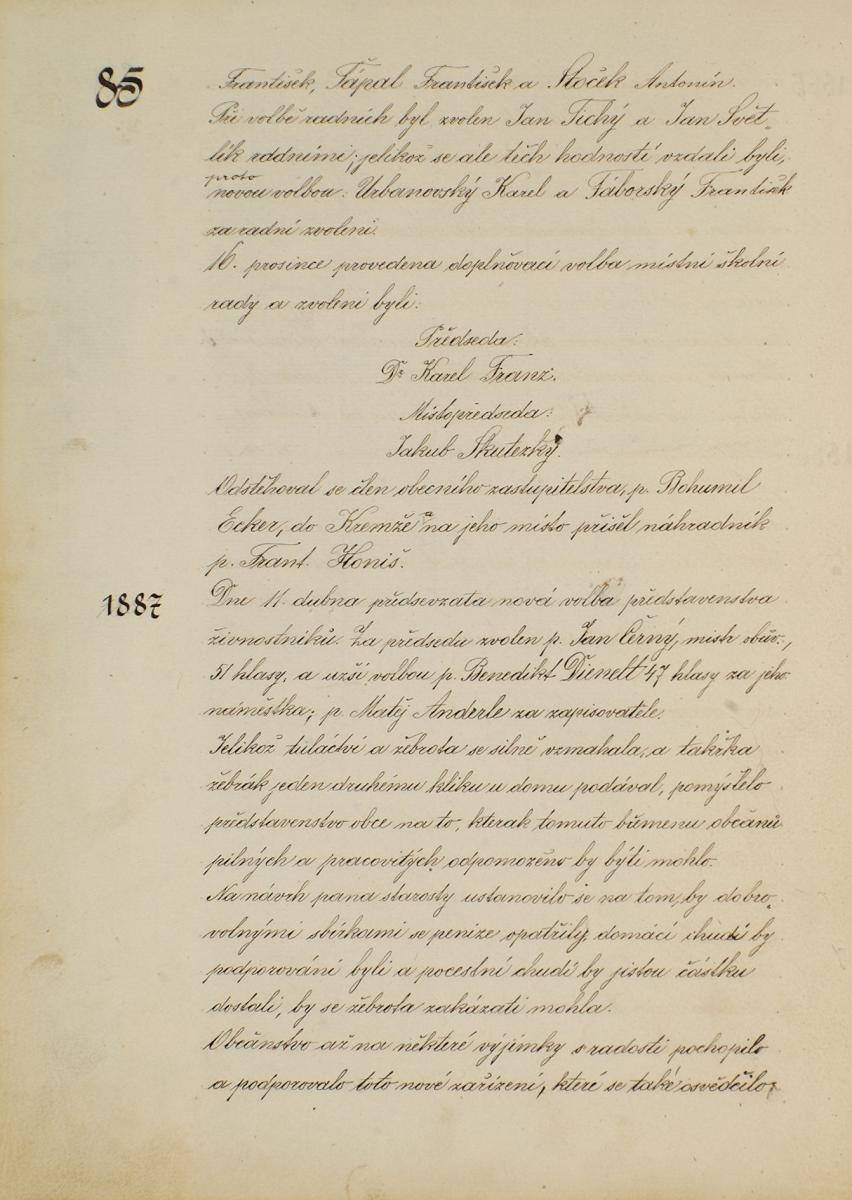 85
František, Tápal František a Stoček Antonín.
Při volbě radních byl zvolen Jan Tichý a Jan Svět-
lík raddními; jelikož se ale těch hodností vzdali byli,
proto
novou volbou: Urbanovský Karel a Táborský František
za radní zvoleni.
16. prosince provedena doplňovací volba místní školní
rady a zvoleni byli:
Předseda:
Dr Karel Franz.
Místopředseda:
Jakub Skutezký.
Odstěhoval se člen obecního zastupitelstva, p. Bohumil
Ecker, do Kremže a na jeho místo přišel náhradník
p. Frant. Honiš.
1887
Dne 11. dubna předsevzata nová volba představenstva
živnostníků. Za předsedu zvolen p. Jan Černý, mistr obuv.,
51 hlasy, a užší volbou p. Benedikt Dienelt 47 hlasy za jeho
náměstka; p. Matěj Anderle za zapisovatele.
Jelikož tuláctví a žebrota se silně vzmahala, a takřka
žebrák jeden druhému kliku u domu podával, pomýšlelo
představenstvo obce na to, kterak tomuto břmenu občanů
pilných a pracovitých odpomoženo by býti mohlo.
Na návrh pana starosty ustanovilo se na tom, by dobro-
volnými sbírkami se peníze opatřily, domácí chudí by
podporováni byli a pocestní chudí by jistou částku
dostali, by se žebrota zakázati mohla.
Občanstvo až na některé výjimky s radosti pochopilo
a podporovalo toto nové zařízení, které se také osvědčilo,